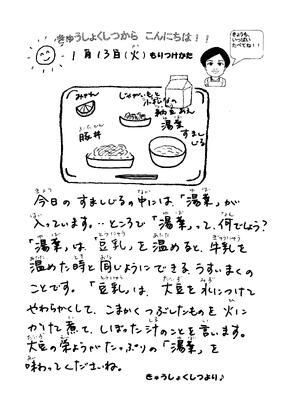 きゅうしょくしつから こんにちは!!
1月13日(火)もりつけかた
きょうも、
いっぱい
たべてね!!
みかん
じゃがいもと
豚丼
湯葉
すまし
じる
今日の すましじるの中には、「湯葉」が
入っています。‥ところで「湯葉」って、何でしょう?
「湯葉」は、「豆乳」を温めると、牛乳を
温めた時と同じようにできる、うすいまくの
ことです。「豆乳」は、大豆を水につけて
やわらかくして、こまかくつぶしたものを火に
かけて煮て、しぼった汁のことを言います。
大豆の栄ようがたっぷりの「湯葉」を
味わってくださいね。
きゅうしょくしつより♪